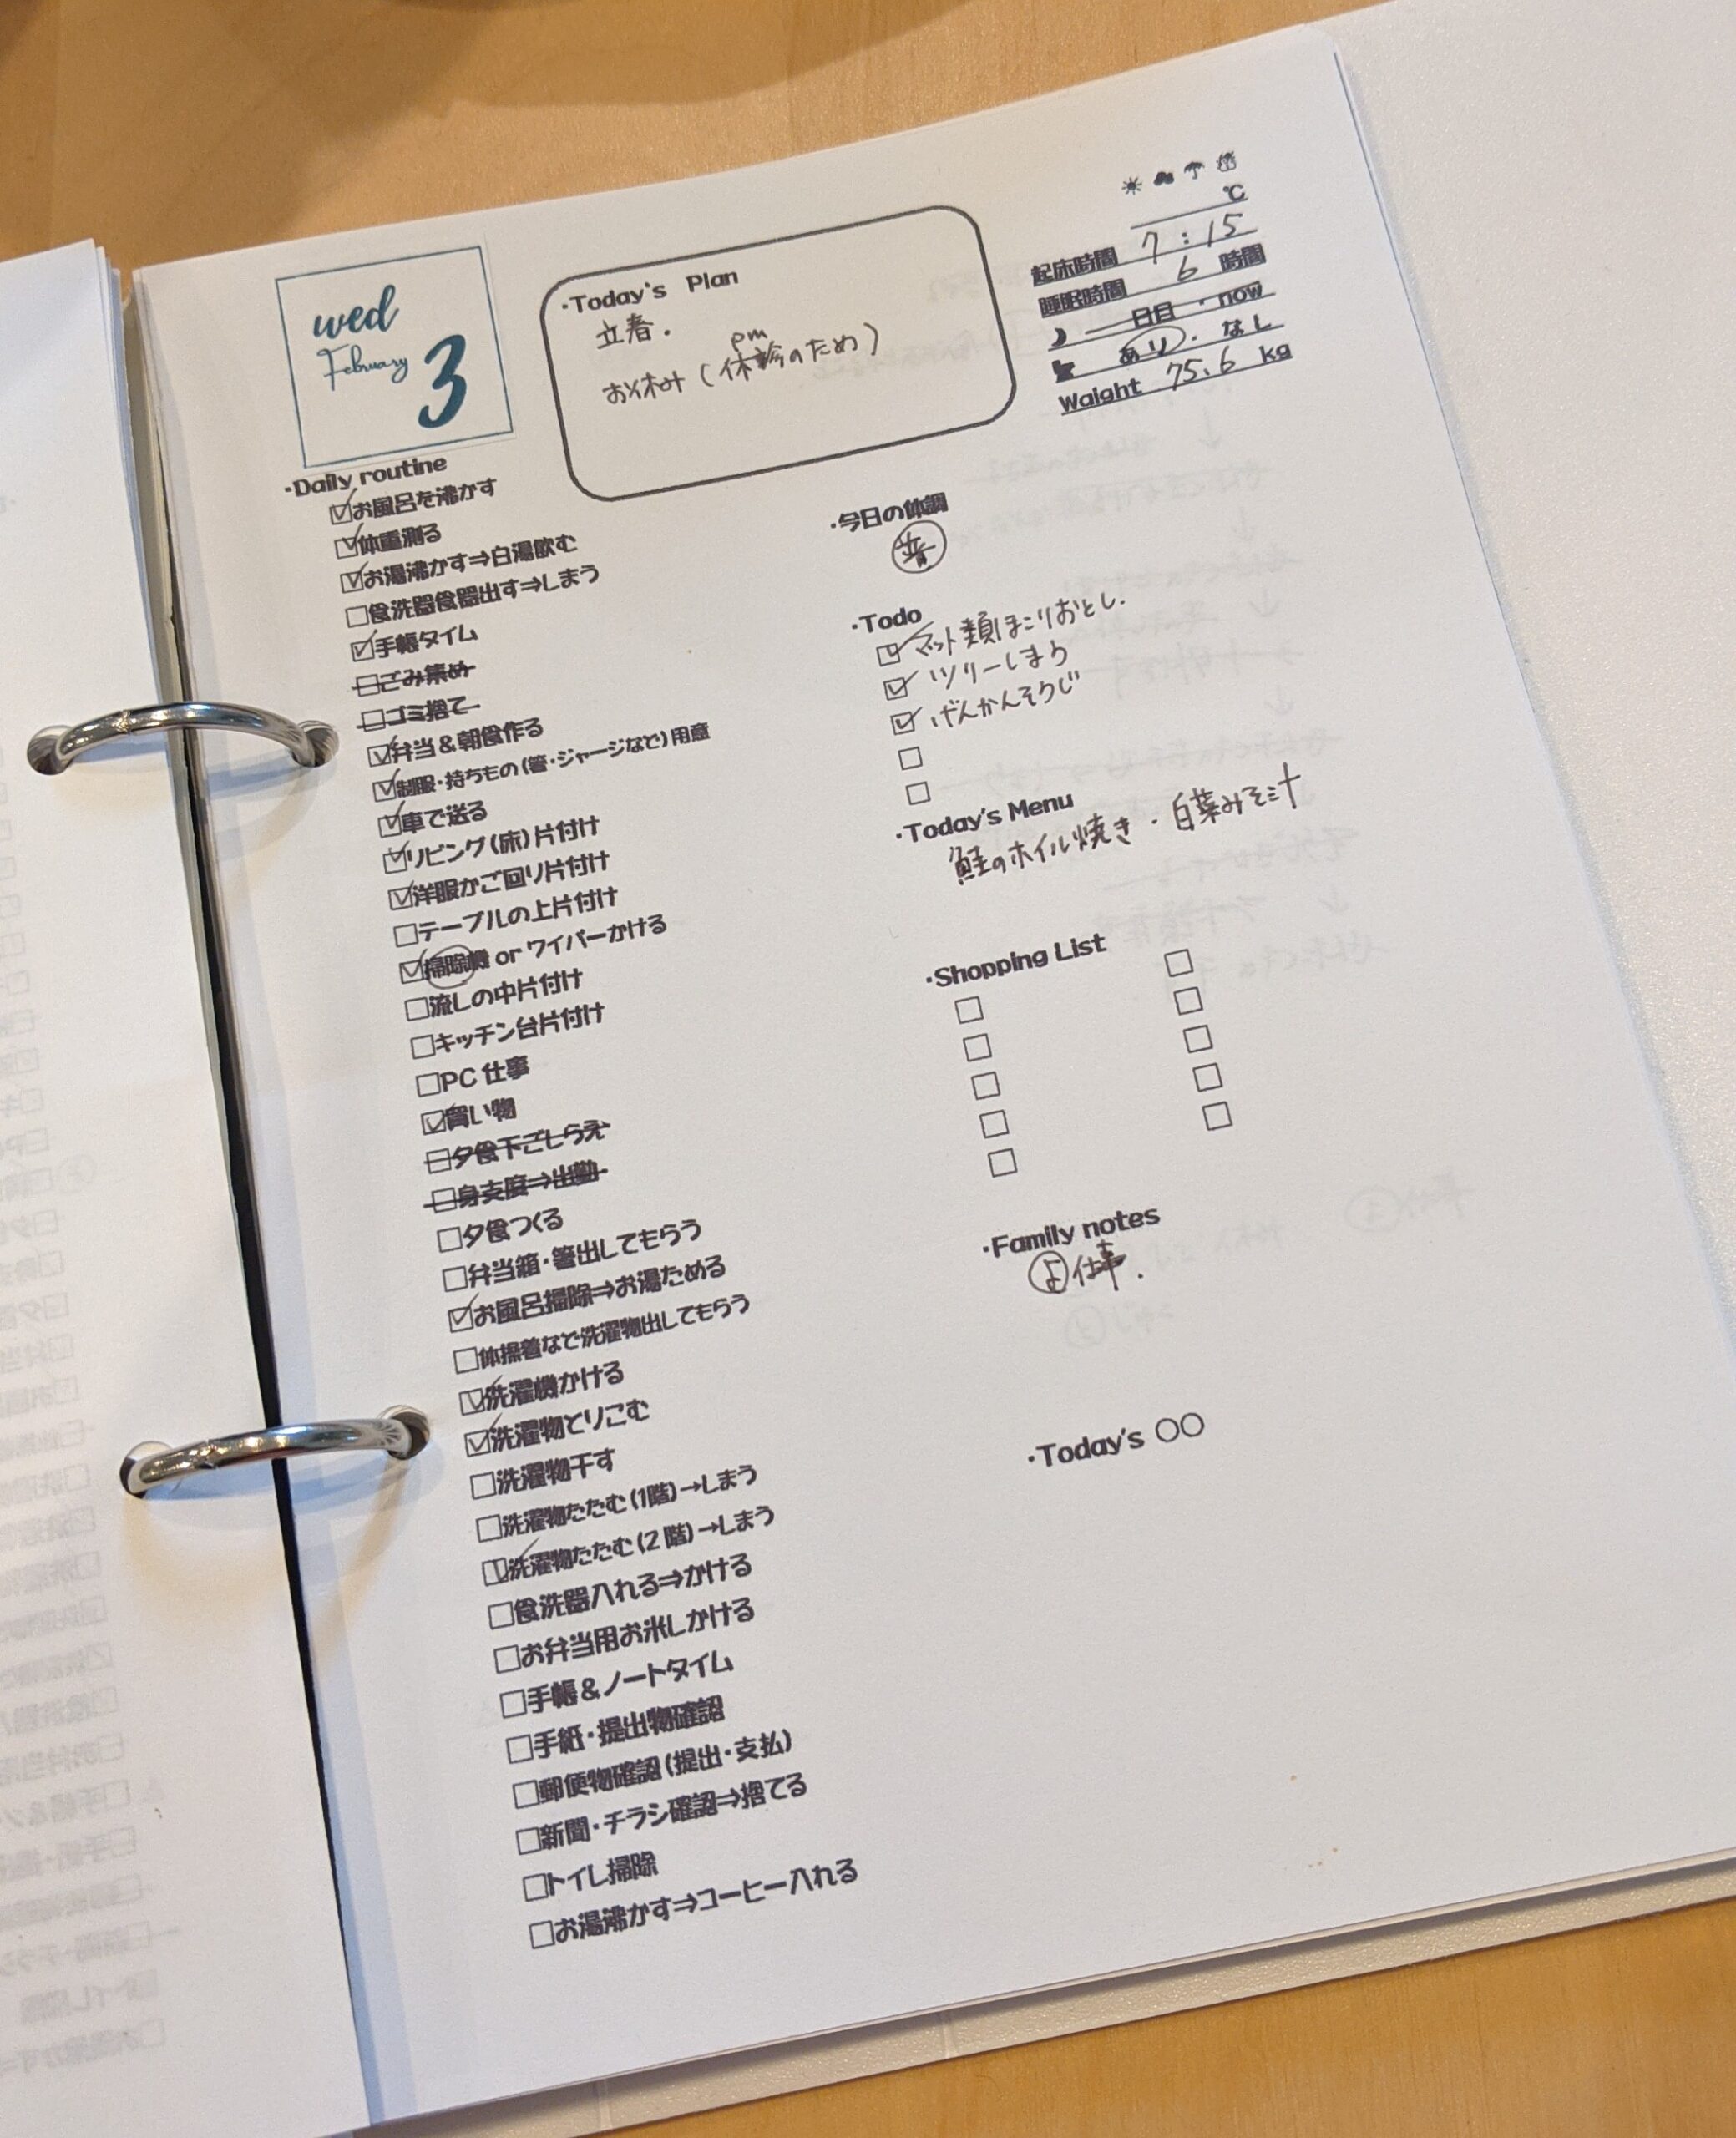 wed
February
3
·Today's Plan
立春.
pm
お休み(休診のため)
℃
起床時間 7:15
睡眠時間 6 時間
日目・now
あり・なし
Waight 75.6 kg
·Daily routine
☑お風呂を沸かす
☑体重測る
☑お湯沸かす⇒白湯飲む
□食洗器食器出す⇒しまう
☑手帳タイム
□ごみ集め
□ゴミ捨て
☑弁当&朝食作る
☑制服・持ちもの(箸・ジャージなど)用意
☑車で送る
☑リビング(床)片付け
☑洋服かご回り片付け
□テーブルの上片付け
☑掃除機 or ワイパーかける
□流しの中片付け
□キッチン台片付け
□PC 仕事
☑買い物
□夕食下ごしらえ
□身支度⇒出勤
□夕食つくる
□弁当箱・箸出してもらう
☑お風呂掃除⇒お湯ためる
□体操着など洗濯物出してもらう
☑洗濯機かける
☑洗濯物とりこむ
□洗濯物干す
□洗濯物たたむ(1階)→しまう
☑洗濯物たたむ(2階)→しまう
□食洗器入れる⇒かける
□お弁当用お米しかける
□手帳&ノートタイム
□手紙・提出物確認
□郵便物確認(提出・支払)
□新聞・チラシ確認⇒捨てる
□トイレ掃除
□お湯沸かす⇒コーヒー入れる
·今日の体調
普
·Todo
☑マット類ほこりおとし.
☑ツリーしまう
☑げんかんそうじ
□
□
·Today's Menu
鮭のホイル焼き・白菜みそ汁
·Shopping List
·Family notes
よ仕事.
·Today's ○○